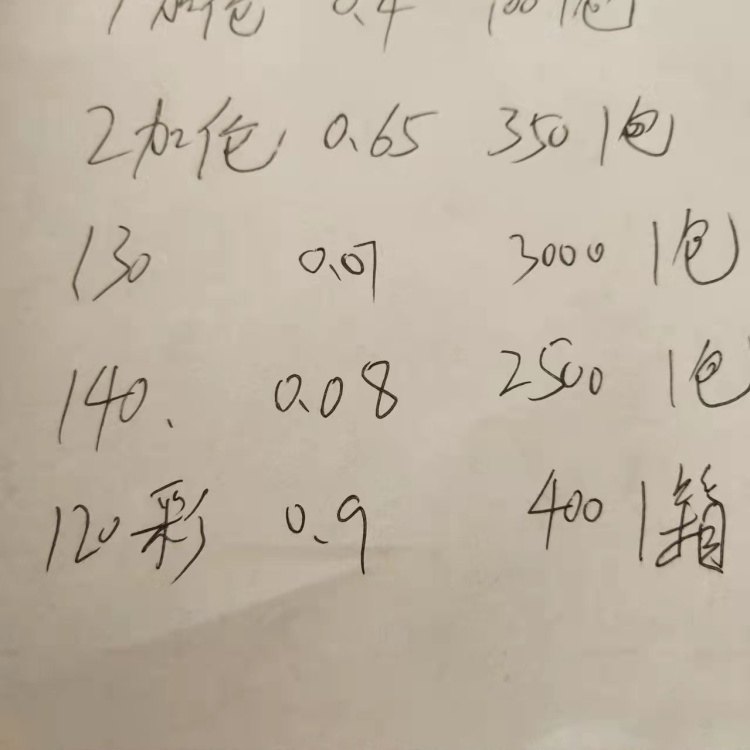 1加仑 0.4 100 1包
2加仑 0.65 350 1包
130 0.07 3000 1包
140. 0.08 2500 1包
120彩 0.9 400 1箱